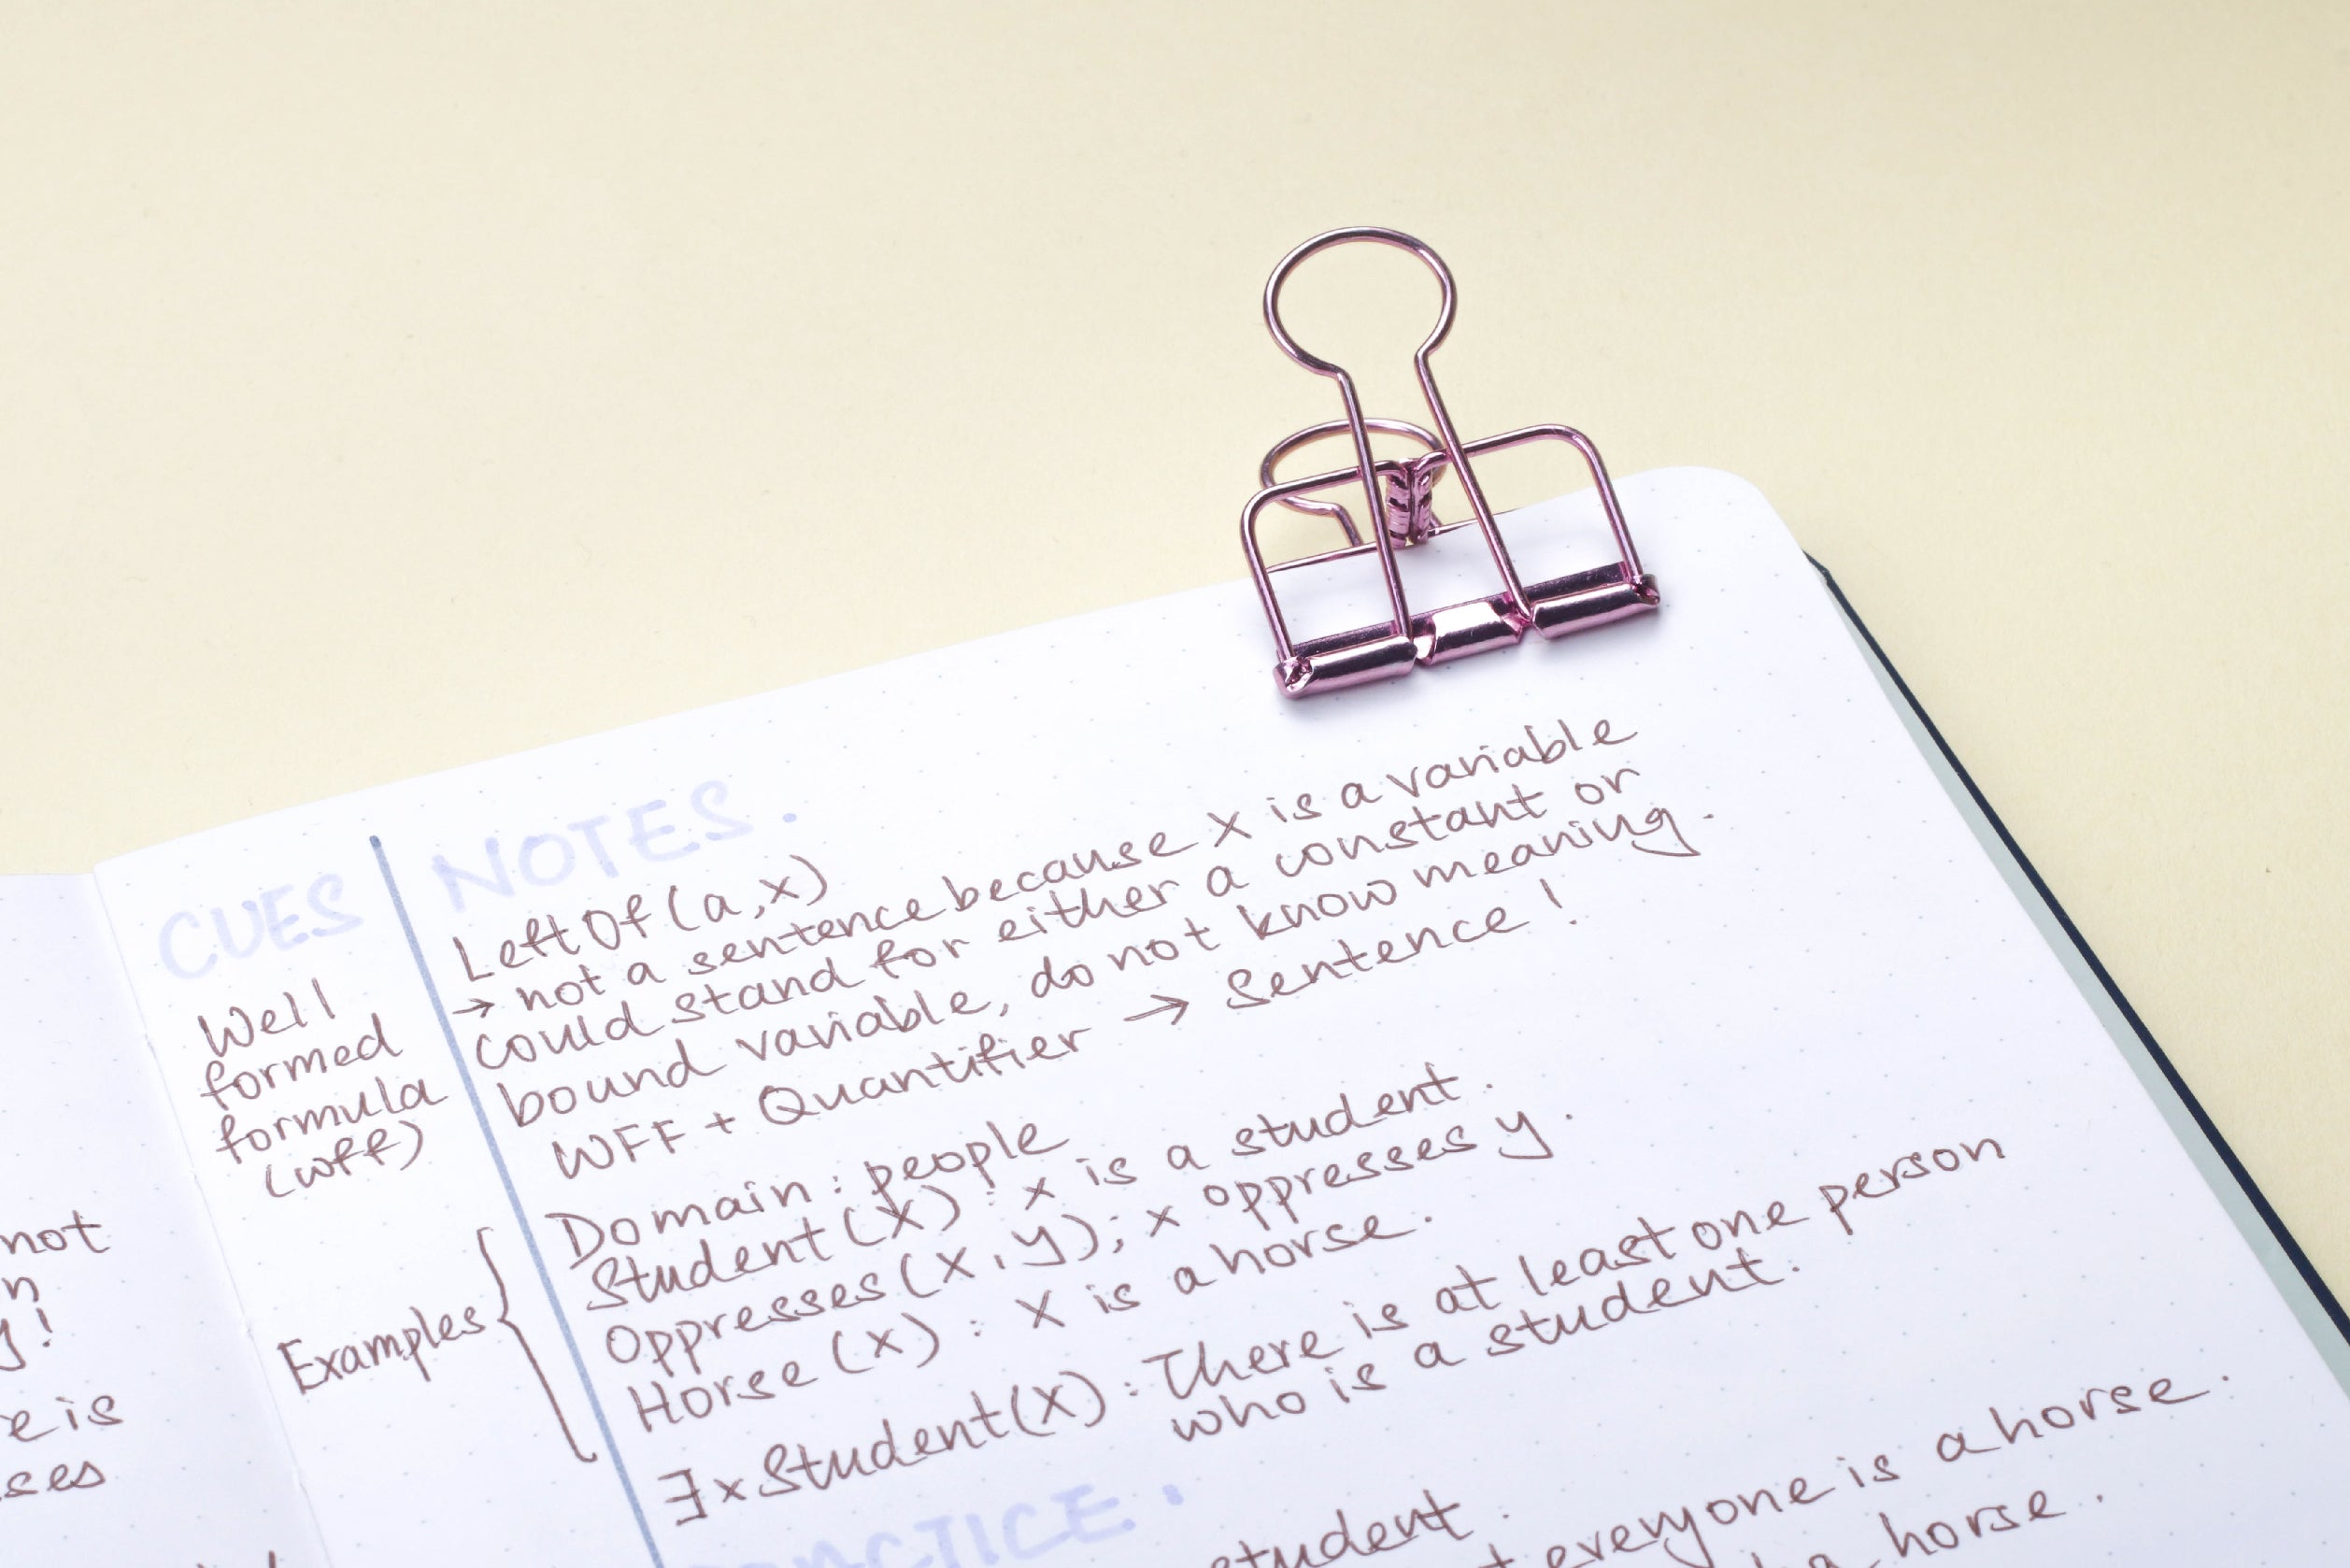 not
n
y!
e is
ses
CUES
Well
formed
formula
(wff)
Examples
NOTES.
LeftOf(a,x)
→ not a sentence because x is a variable
could stand for either a constant or
bound variable, do not know meaning.
WFF + Quantifier → Sentence!
Domain: people
Student(x): x is a student.
Oppresses(x,y); x oppresses y.
Horse(x): x is a horse.
∃xStudent(x): There is at least one person
who is a student.
PRACTICE.
student.
everyone is a horse.
a horse.